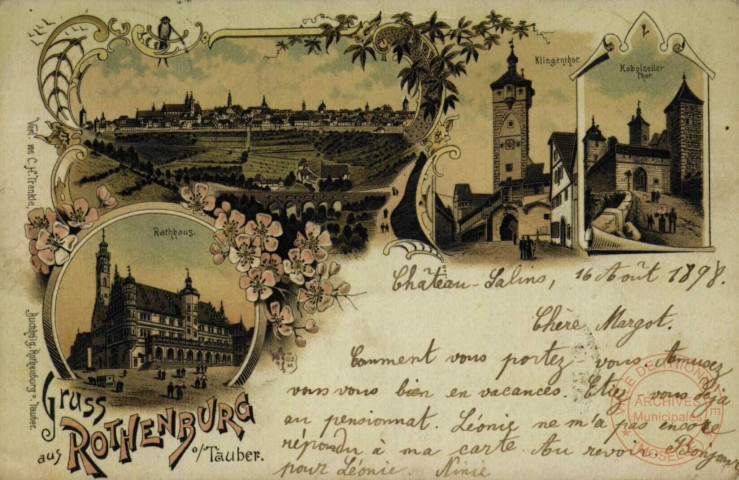 Klingenthor.
Kobolzeller
Thor.
Rathhaus.
Verl. v. C. H. Trenkle,
Buchhdlg. Rothenburg o. Tauber.
Gruss
aus ROTHENBURG
o/Tauber.
Château-Salins, 16 Août 1898.
Chère Margot.
Comment vous portez-vous Amusez
vous vous bien en vacances. Etiez vous déjà
au pensionnat. Léonie ne m'a pas encore
répondu à ma carte. Au revoir. Bonjour
pour Léonie. Ninie
VILLE DE THIONVILLE
ARCHIVES
Municipales
MOSELLE